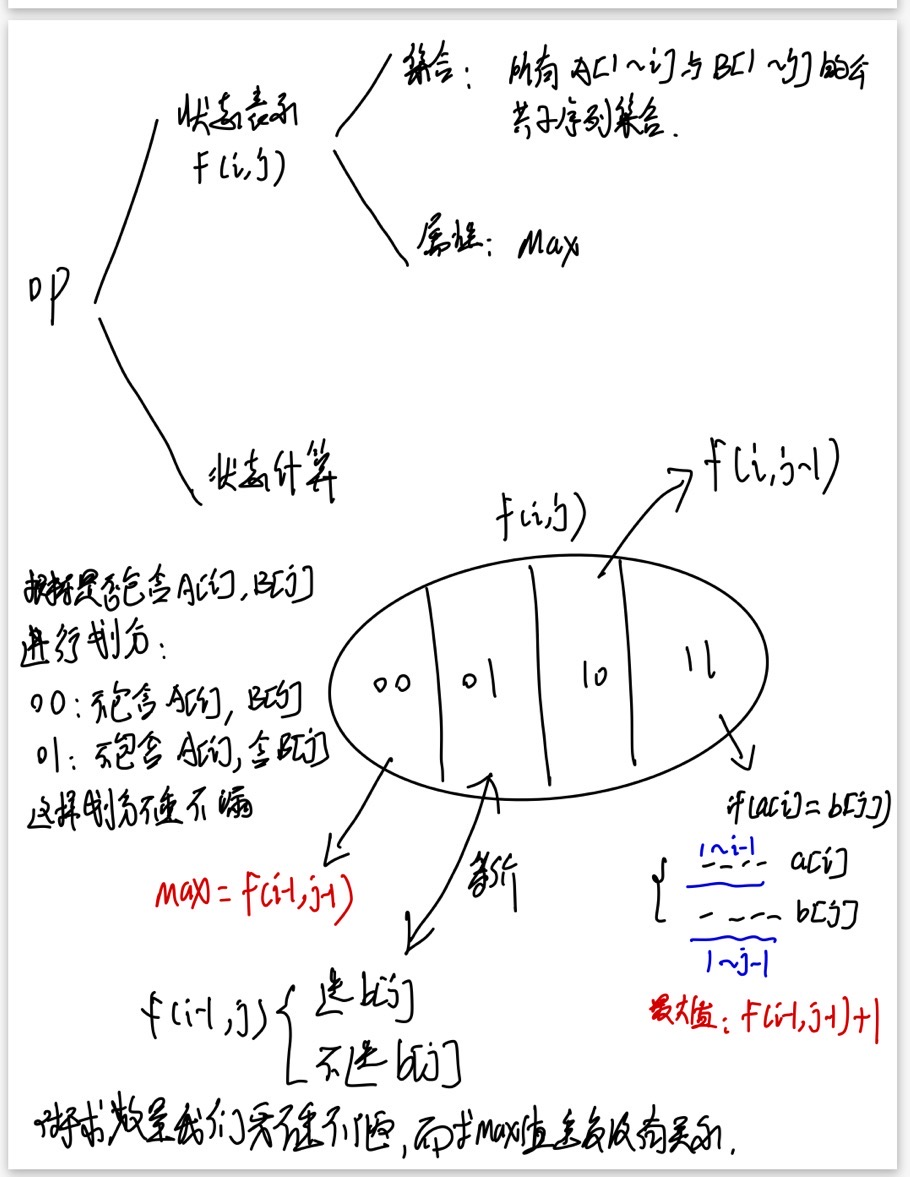 集合: 所有A[1~i]与B[1~j]的公
共子序列集合.
状态表示
f(i,j)
属性: Max
DP
状态计算
f(i,j-1)
f(i,j)
根据是否包含A[i],B[j]
进行划分:
00 01 10 11
00:不包含A[i],B[j]
01:不包含A[i],含B[j]
这样划分不重不漏
if(a[i]=b[j])
1~i-1
a[i]
b[j]
1~j-1
max=f(i-1,j-1)
等价
最大值:f(i-1,j-1)+1
f(i-1,j)
选b[j]
不选b[j]
求数量我们需不重不漏,而求max值重复没有关系.